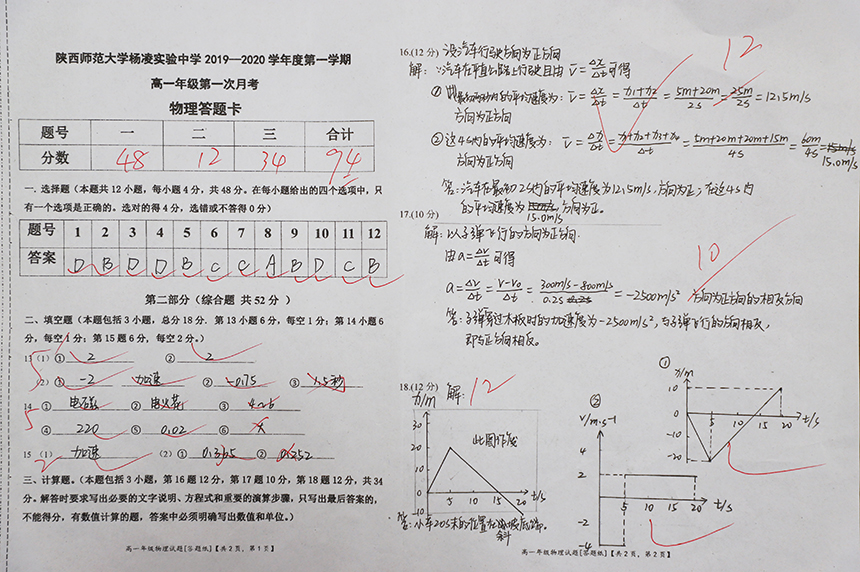 陕西师范大学杨凌实验中学 2019—2020 学年度第一学期
高一年级第一次月考
物理答题卡
题号 一 二 三 合计
分数 48 12 34 94
一. 选择题（本题共 12 小题，每小题 4 分，共 48 分。在每小题给出的四个选项中，只
有一个选项是正确的。选对的得 4 分，选错或不答得 0 分）
题号 1 2 3 4 5 6 7 8 9 10 11 12
答案 D B D D B C C A B D C B
第二部分（综合题 共 52 分）
二、填空题（本题包括 3 小题，总分 18 分．第 13 小题 6 分，每空 1 分；第 14 小题 6
分，每空 1 分；第 15 题 6 分，每空 2 分。）
13 （1）① 2 ② 2
（2）① -2 加速 ② -0.75 ③ 1.5秒
14 ① 电磁 ② 电火花 ③ 4~6
④ 220 ⑤ 0.02 ⑥
15 （1） 加速 （2）①
三、计算题。（本题包括 3 小题，第 16 题 12 分，第 17 题 10 分，第 18 题 12 分，共 34
分。解答时要求写出必要的文字说明、方程式和重要的演算步骤，只写出最后答案的，
不能得分，有数值计算的题，答案中必须明确写出数值和单位。）
高一年级物理试题[答题纸]【共 2 页，第 1 页】
16.(12 分) 设汽车行驶方向为正方向 12
解：∵汽车在平直公路上行驶且由 v̄=Δx/Δt可得
① 最初两秒内的平均速度为：v̄=Δx/Δt=(x1+x2)/Δt=(5m+20m)/2s=25m/2s=12.5m/s
方向为正方向
②这4s内的平均速度为：v̄=Δx/Δt=(x1+x2+x3+x4)/Δt=(5m+20m+20m+15m)/4s=60m/4s=
15.0m/s
方向为正方向
答：汽车在最初2s内的平均速度为12.5m/s，方向为正；在这4s内
的平均速度为 方向为正。
15.0m/s
17.(10 分)
解：以子弹飞行的方向为正方向. 10
由a=Δv/Δt可得
a=Δv/Δt=(v-v0)/Δt=(300m/s-800m/s)/0.2s=-2500m/s² 方向为正方向的相反方向
答：子弹穿过木板时的加速度为-2500m/s²，与子弹飞行的方向相反，
即与正方向相反。
18.(12 分) 解： 12
x/m
30
20
10
0 5 10 15 20 t/s
-10
此图作废
答：小车20s末的位置在斜坡底端。
②
v/m·s-1
4
2
5 10 15 20 t/s
-2
-4
①
x/m
10
0 5 10 15 20 t/s
-10
-20
高一年级物理试题[答题纸]【共 2 页，第 2 页】